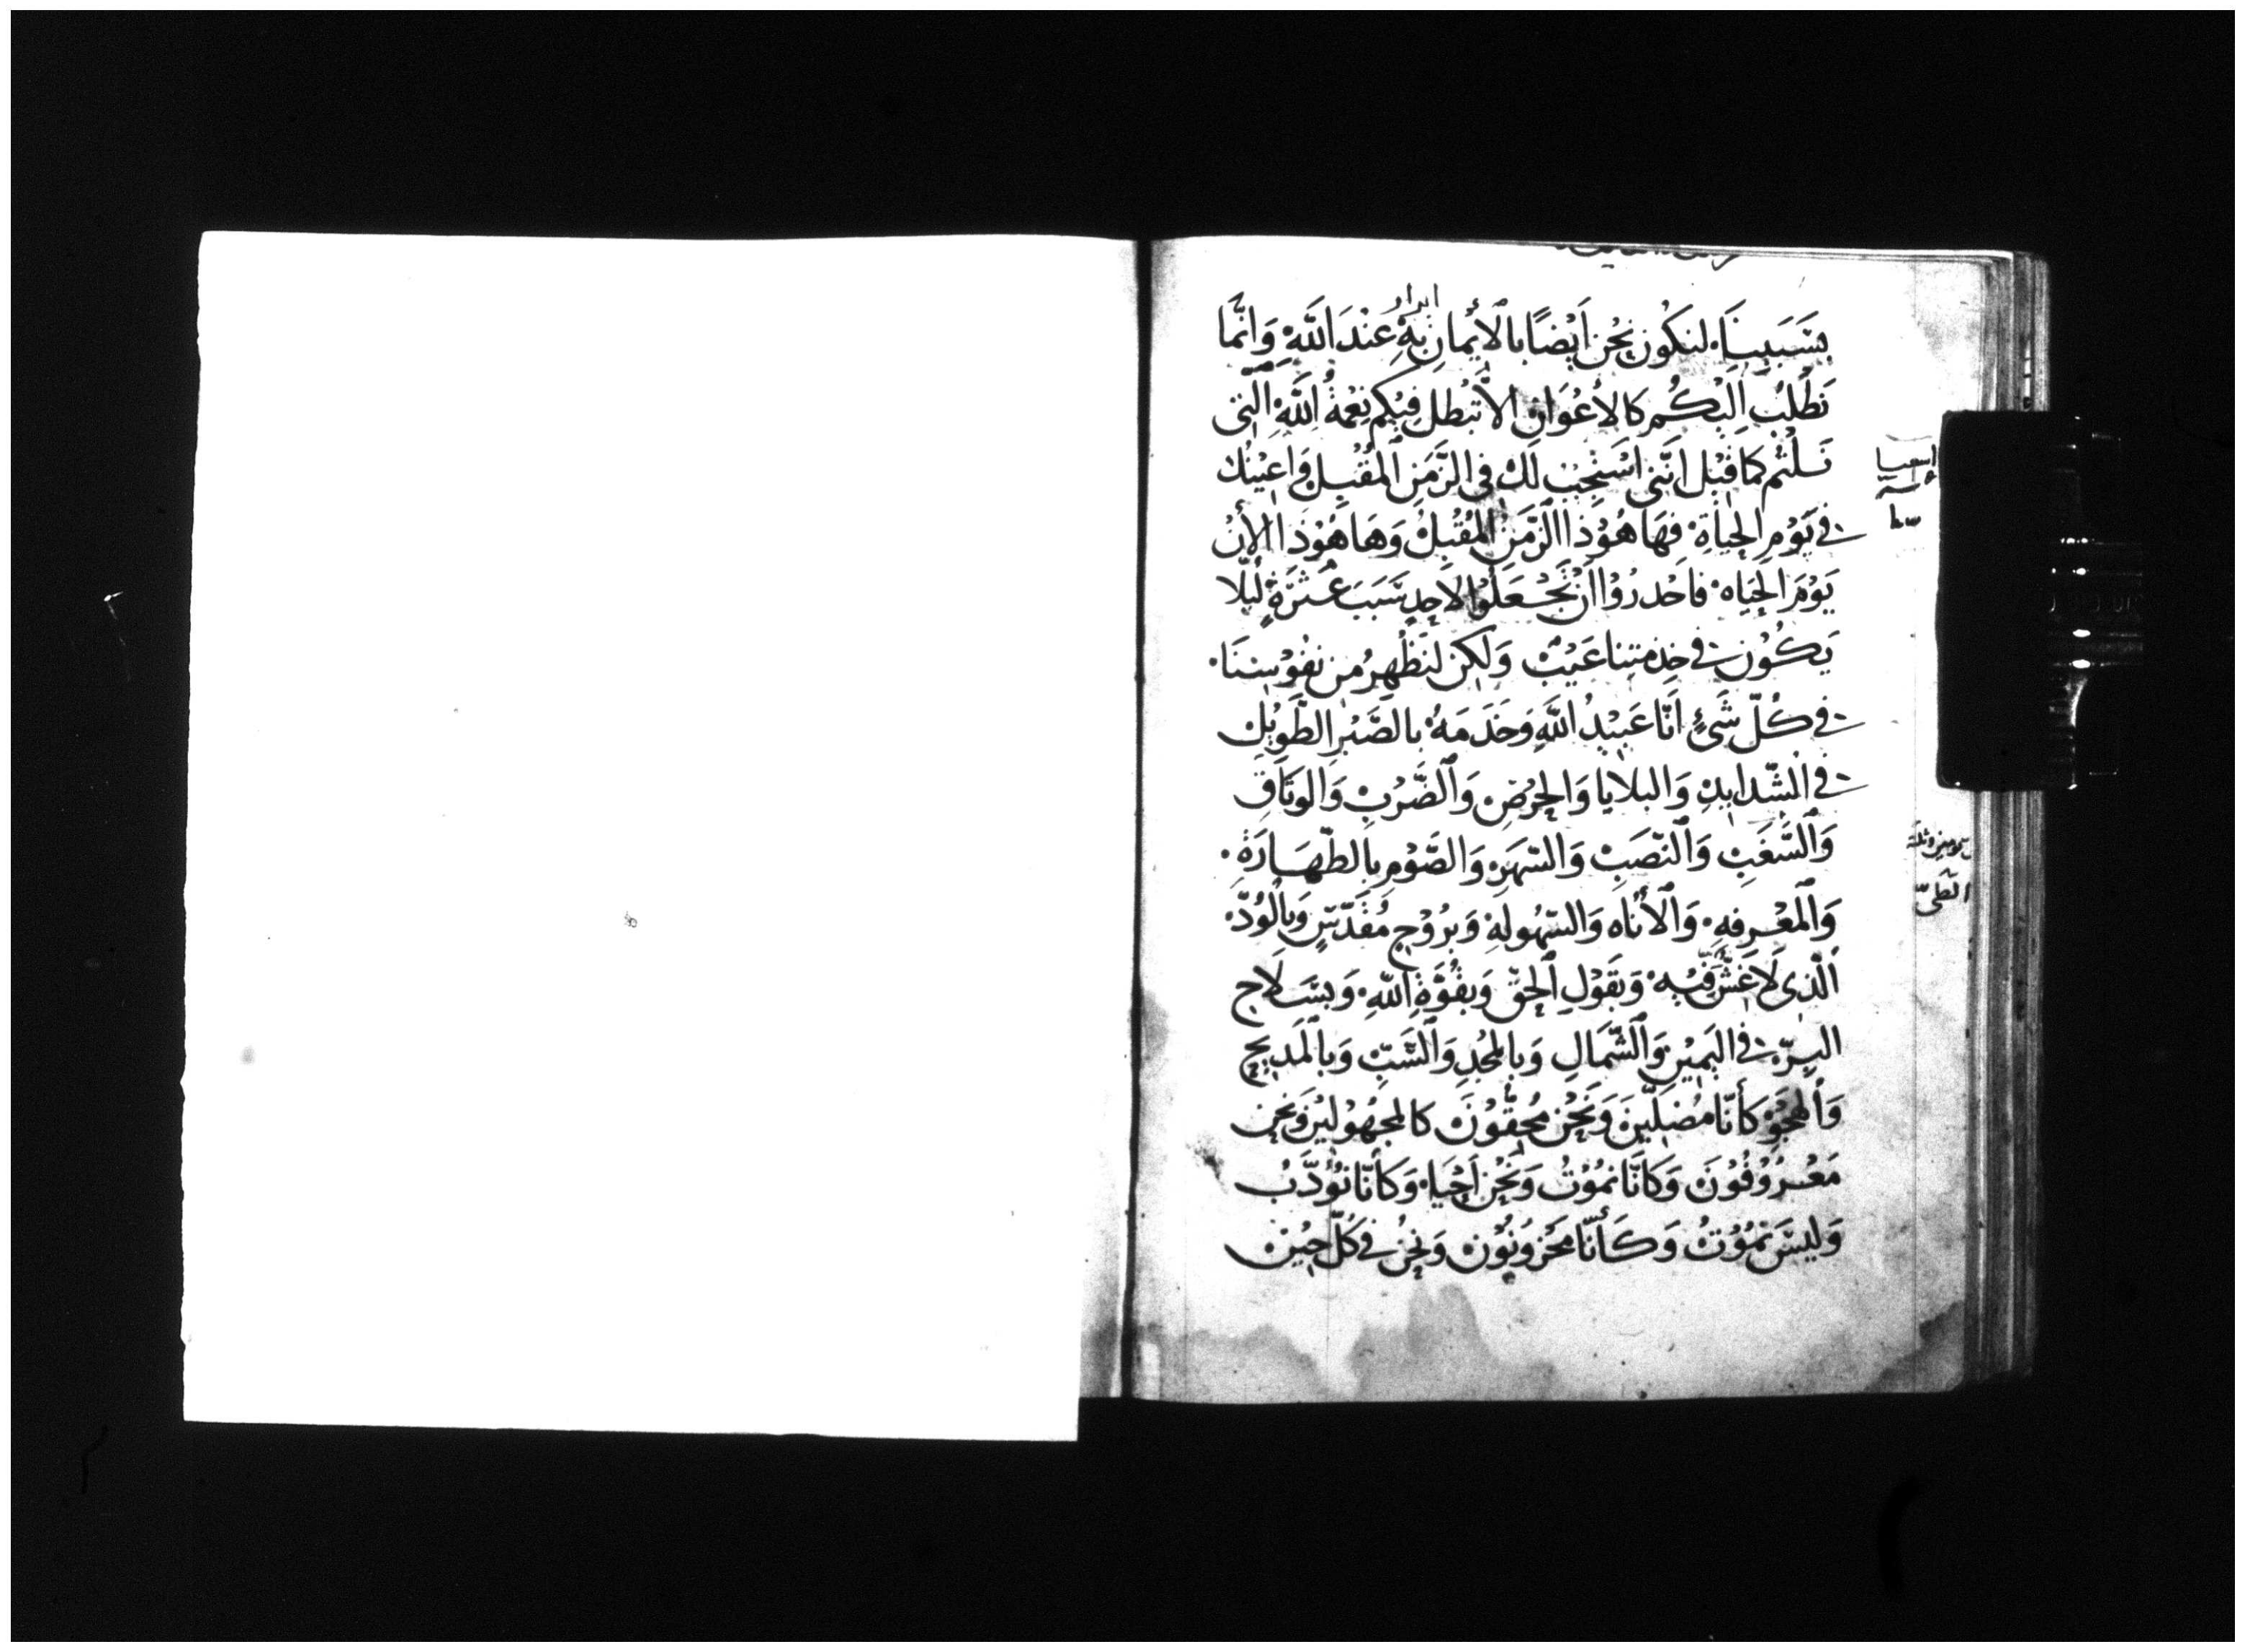 ابرار
بِسَبَبِنَا. لنكُون نحْن اَيْضًا بالأيْمانِ بِهِ عِنْدَ اللَّهِ وَانَّمَا
نَطْلُبُ اِلَيْكُم كالاعْوَانِ الاَّ تبْطل فِيْكُم نِعْمةُ اللَّهِ الَّتِى
نَلْتُم كمَا قِيْل اِنَّنِى اسْتَجِيْبُ لَكَ فِى الزَّمَنِ المُقْبِلِ وَاعِيْنُكَ
فِى يَوْمِ الحَيَاة. فهَا هُوْذا الزَّمَن المُقْبِلُ وَهَا هُوْذَا الأنْ
يَوْمَ الحَيَاه. فاحْدرُوْا اَنْ تَجْعَلُوْا لاَحِدٍ سَبَبَ عُثْرَةٍ لِيَلَّا
يَكُوْن فى خِدْمتِنا عَيْبٌ وَلَكِن لنَظْهرُ مِن نفُوْسِنَا.
فى كُلِّ شَىْءٍ اَنَّا عَبِيْدُ اللَّهِ وَخَدَمَهُ بالصَّبْرِ الطَّوِيْلِ
فى الشَّدايِدِ وَالبلايَا وَالحَرْضِ وَالضَّرْبِ وَالوَثَاقِ
وَالشَّغَبِ وَالنَّصَبِ وَالسَّهَرِ وَالصَّوْمِ بِالطَّهَارَةِ.
وَالمَعْرِفهِ. وَالأنَاه وَالسّهُولهِ وَبرُوْحٍ مُقَدَّسٍ وَبِالوُدِّ
الَّذِى لَا غِشَّ فِيْه. وَبقَوْلِ الحَقِّ وَبقُوَّةِ اللَّهِ. وَبسَلَاحِ
البِرّ فى اليَمِيْنِ وَالشّمَالِ وَبالمجْدِ وَالسَّبِّ وَبالمَدِيْحِ
وَالهَجْوِ كأنّا مُضِلّيْنَ وَنَحْن مُحِقُّوْنَ كالمجهُوْلِيْنَ وَنحْن
مَعْرُوْفُوْنَ وَكانَّا نمُوْتُ وَنحْن اَحْيَاء وَكأنَّا نُوْدَّبُ
وَليسَ نمُوْتُ وَكَأنّا مَحْزوُنُوْن وَنحْنُ فى كُلِّ حِيْنٍ
اشعيا